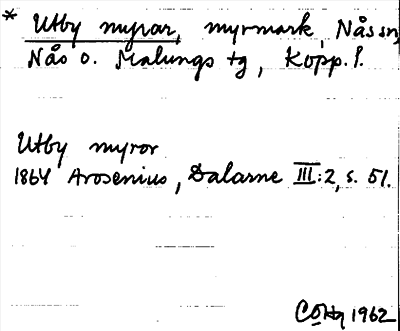 * Utby myrar, myrmark, Nås sn,
Nås o. Malungs tg, Kopp. l.
Utby myror
1864 Arosenius, Dalarne III:2, s. 51.
1962